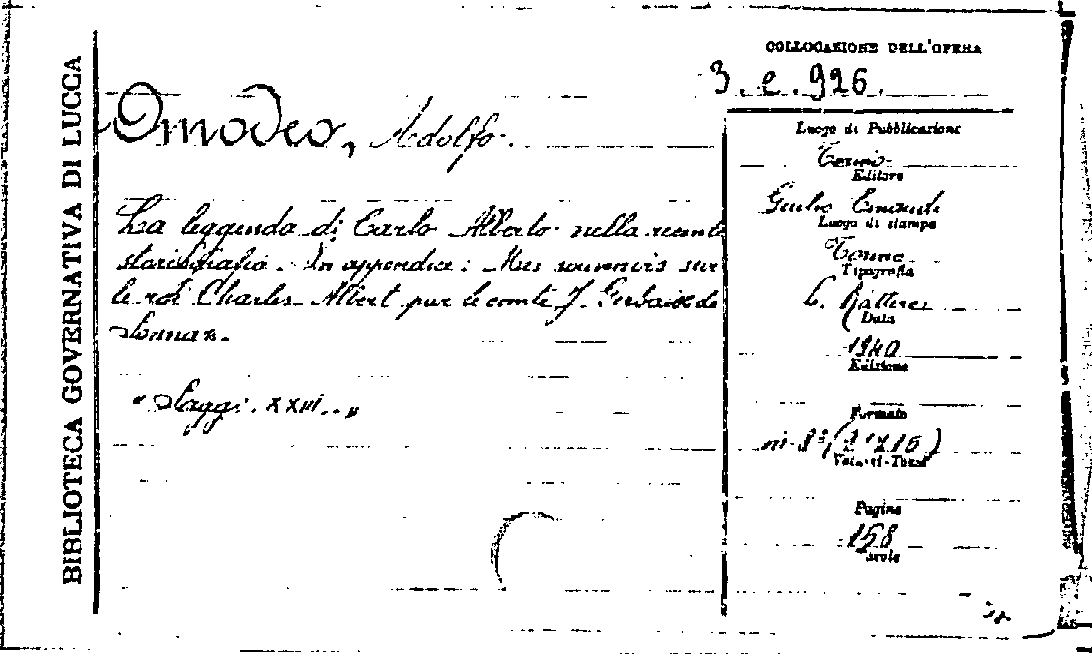 BIBLIOTECA GOVERNATIVA DI LUCCA
COLLOCAZIONE DELL'OPERA
3. e. 926.
Omodeo, Adolfo.
La leggenda di Carlo Alberto nella recente
storiografia. In appendice: Mes souvenirs sur
le roi Charles Albert par le comte J. Gerbaix de
Sonnaz.
"Saggi. XXIII.."
Luogo di Pubblicazione
Torino
Editore
Giulio Einaudi
Luogo di stampa
Torino
Tipografia
Rattero
Data
1940
Edizione
Formato
in-8°
Volumi-Tomi
Pagine
158